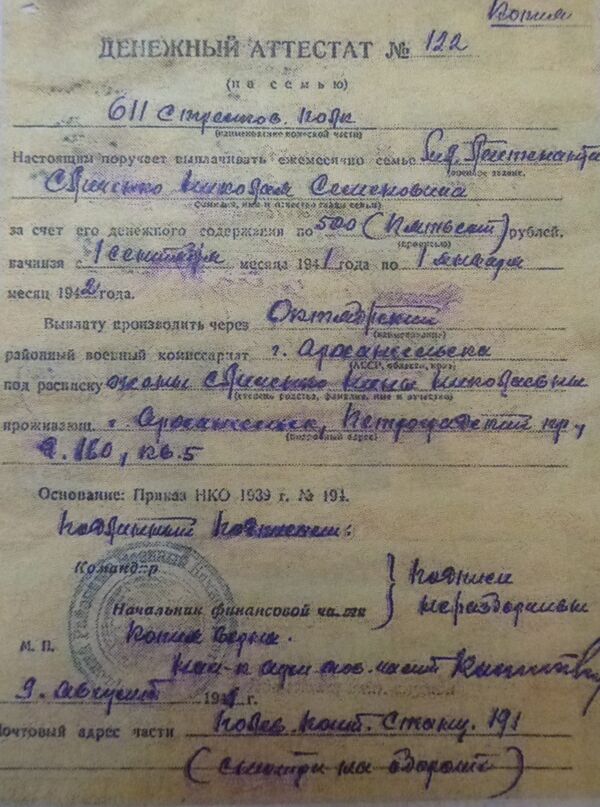 Копия
ДЕНЕЖНЫЙ АТТЕСТАТ № 122
(на семью)
611 стрелков. полк
(наименование воинской части)
Настоящим поручает выплачивать ежемесячно семье мл. лейтенанта
(воинское звание,
Николая Семеновича
фамилия, имя и отчество главы семьи)
за счет его денежного содержания по 500 (Пятьсот) рублей,
(прописью)
начиная с 1 сентября месяца 1941 года по 1 января
месяц 1942 года.
Выплату производить через Октябрьский
(наименование)
районный военный комиссариат г. Архангельска
(АССР, области, края)
под расписку жены Нины Николаевны
(степень родства, фамилия, имя и отчество)
проживающ. г. Архангельск, Петроградский пр.,
(подробный адрес)
д. 160, кв. 5
Основание: Приказ НКО 1939 г. № 194.
Подлинный подписали:
Командир
Начальник финансовой части
подписи
неразборчивы
М. П.
Копия верна.
Нач-к адм. хоз. части
9. августа 194 г.
Почтовый адрес части Полев. почт. станц. 191
(смотри на обороте)